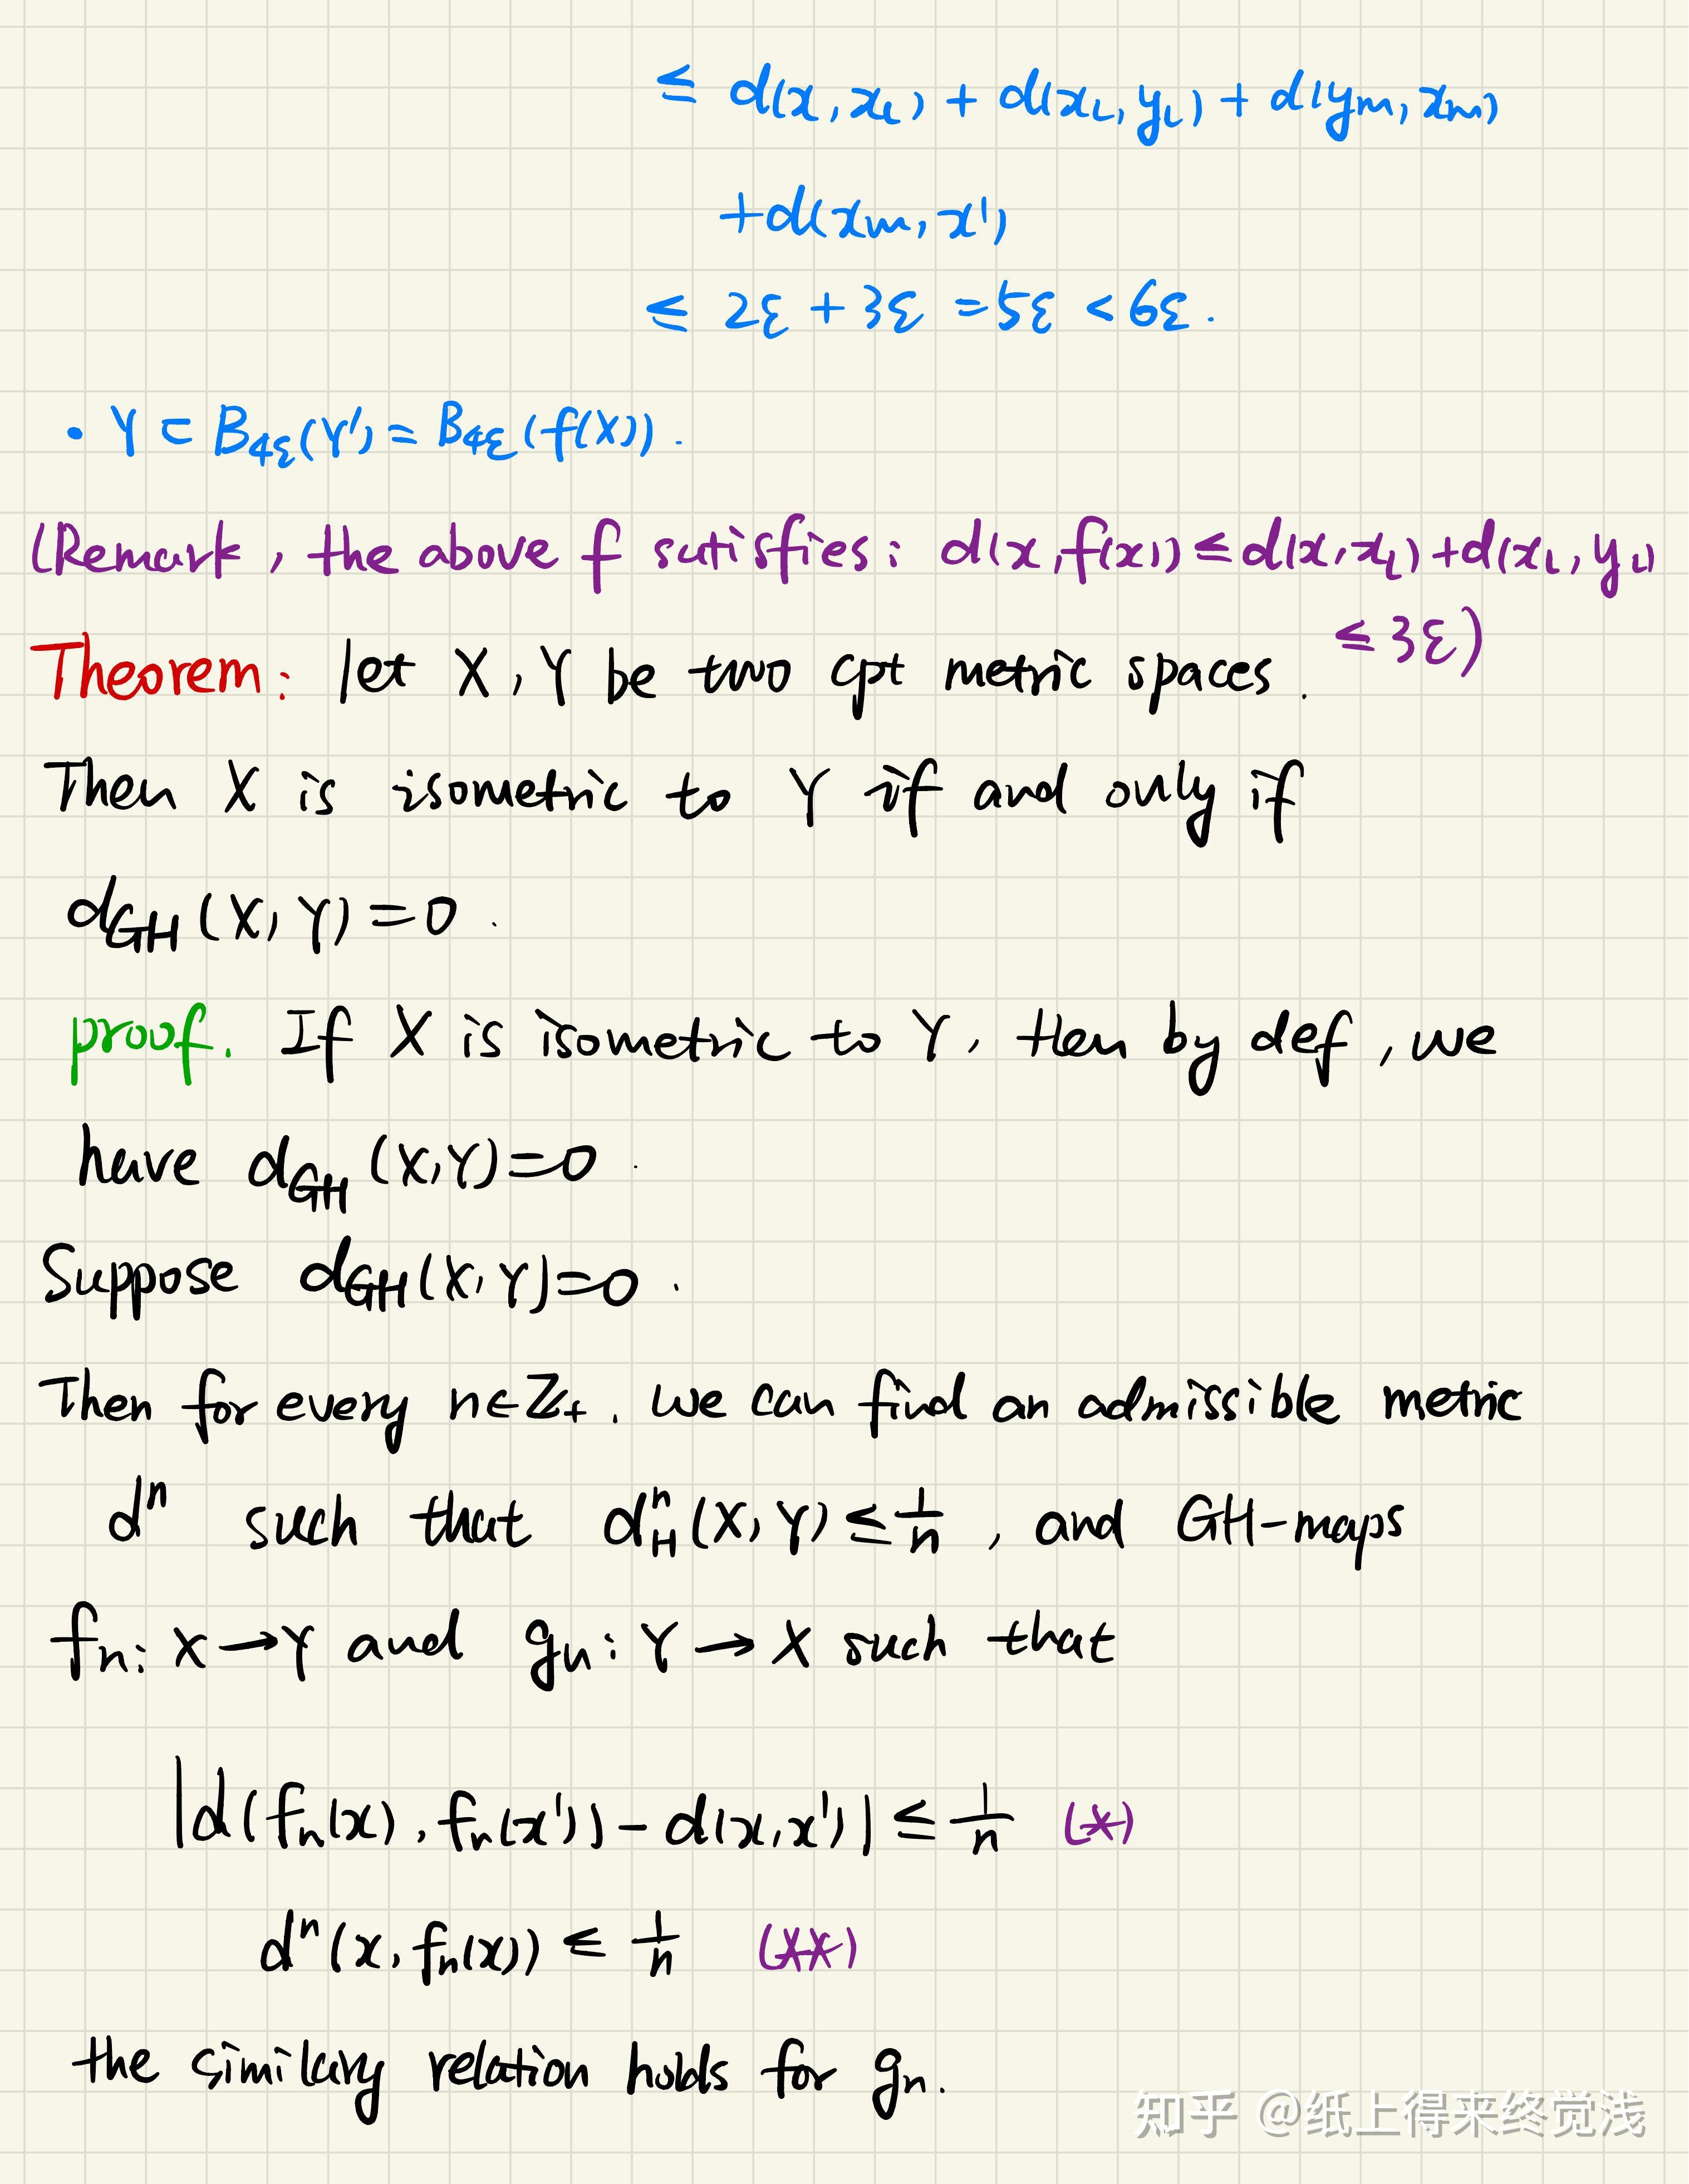 ≤ d(x, x_L) + d(x_L, y_L) + d(y_m, x_m)
+ d(x_m, x')
≤ 2ε + 3ε = 5ε < 6ε.
• Y ⊂ B_{4ε}(Y') = B_{4ε}(f(X)).
(Remark, the above f sutisfies: d(x, f(x)) ≤ d(x, x_L) + d(x_L, y_L)
≤ 3ε)
Theorem: let X, Y be two cpt metric spaces.
Then X is isometric to Y if and only if
d_{GH}(X, Y) = 0.
proof. If X is isometric to Y, then by def, we
have d_{GH}(X, Y) = 0.
Suppose d_{GH}(X, Y) = 0.
Then for every n ∈ ℤ₊. we can find an admissible metric
dⁿ such that dⁿ_H(X, Y) ≤ 1/n, and GH-maps
f_n: X → Y and g_n: Y → X such that
|d(f_n(x), f_n(x')) - d(x, x')| ≤ 1/n (*)
dⁿ(x, f_n(x)) ≤ 1/n (**)
the similary relation holds for g_n.
知乎 @纸上得来终觉浅